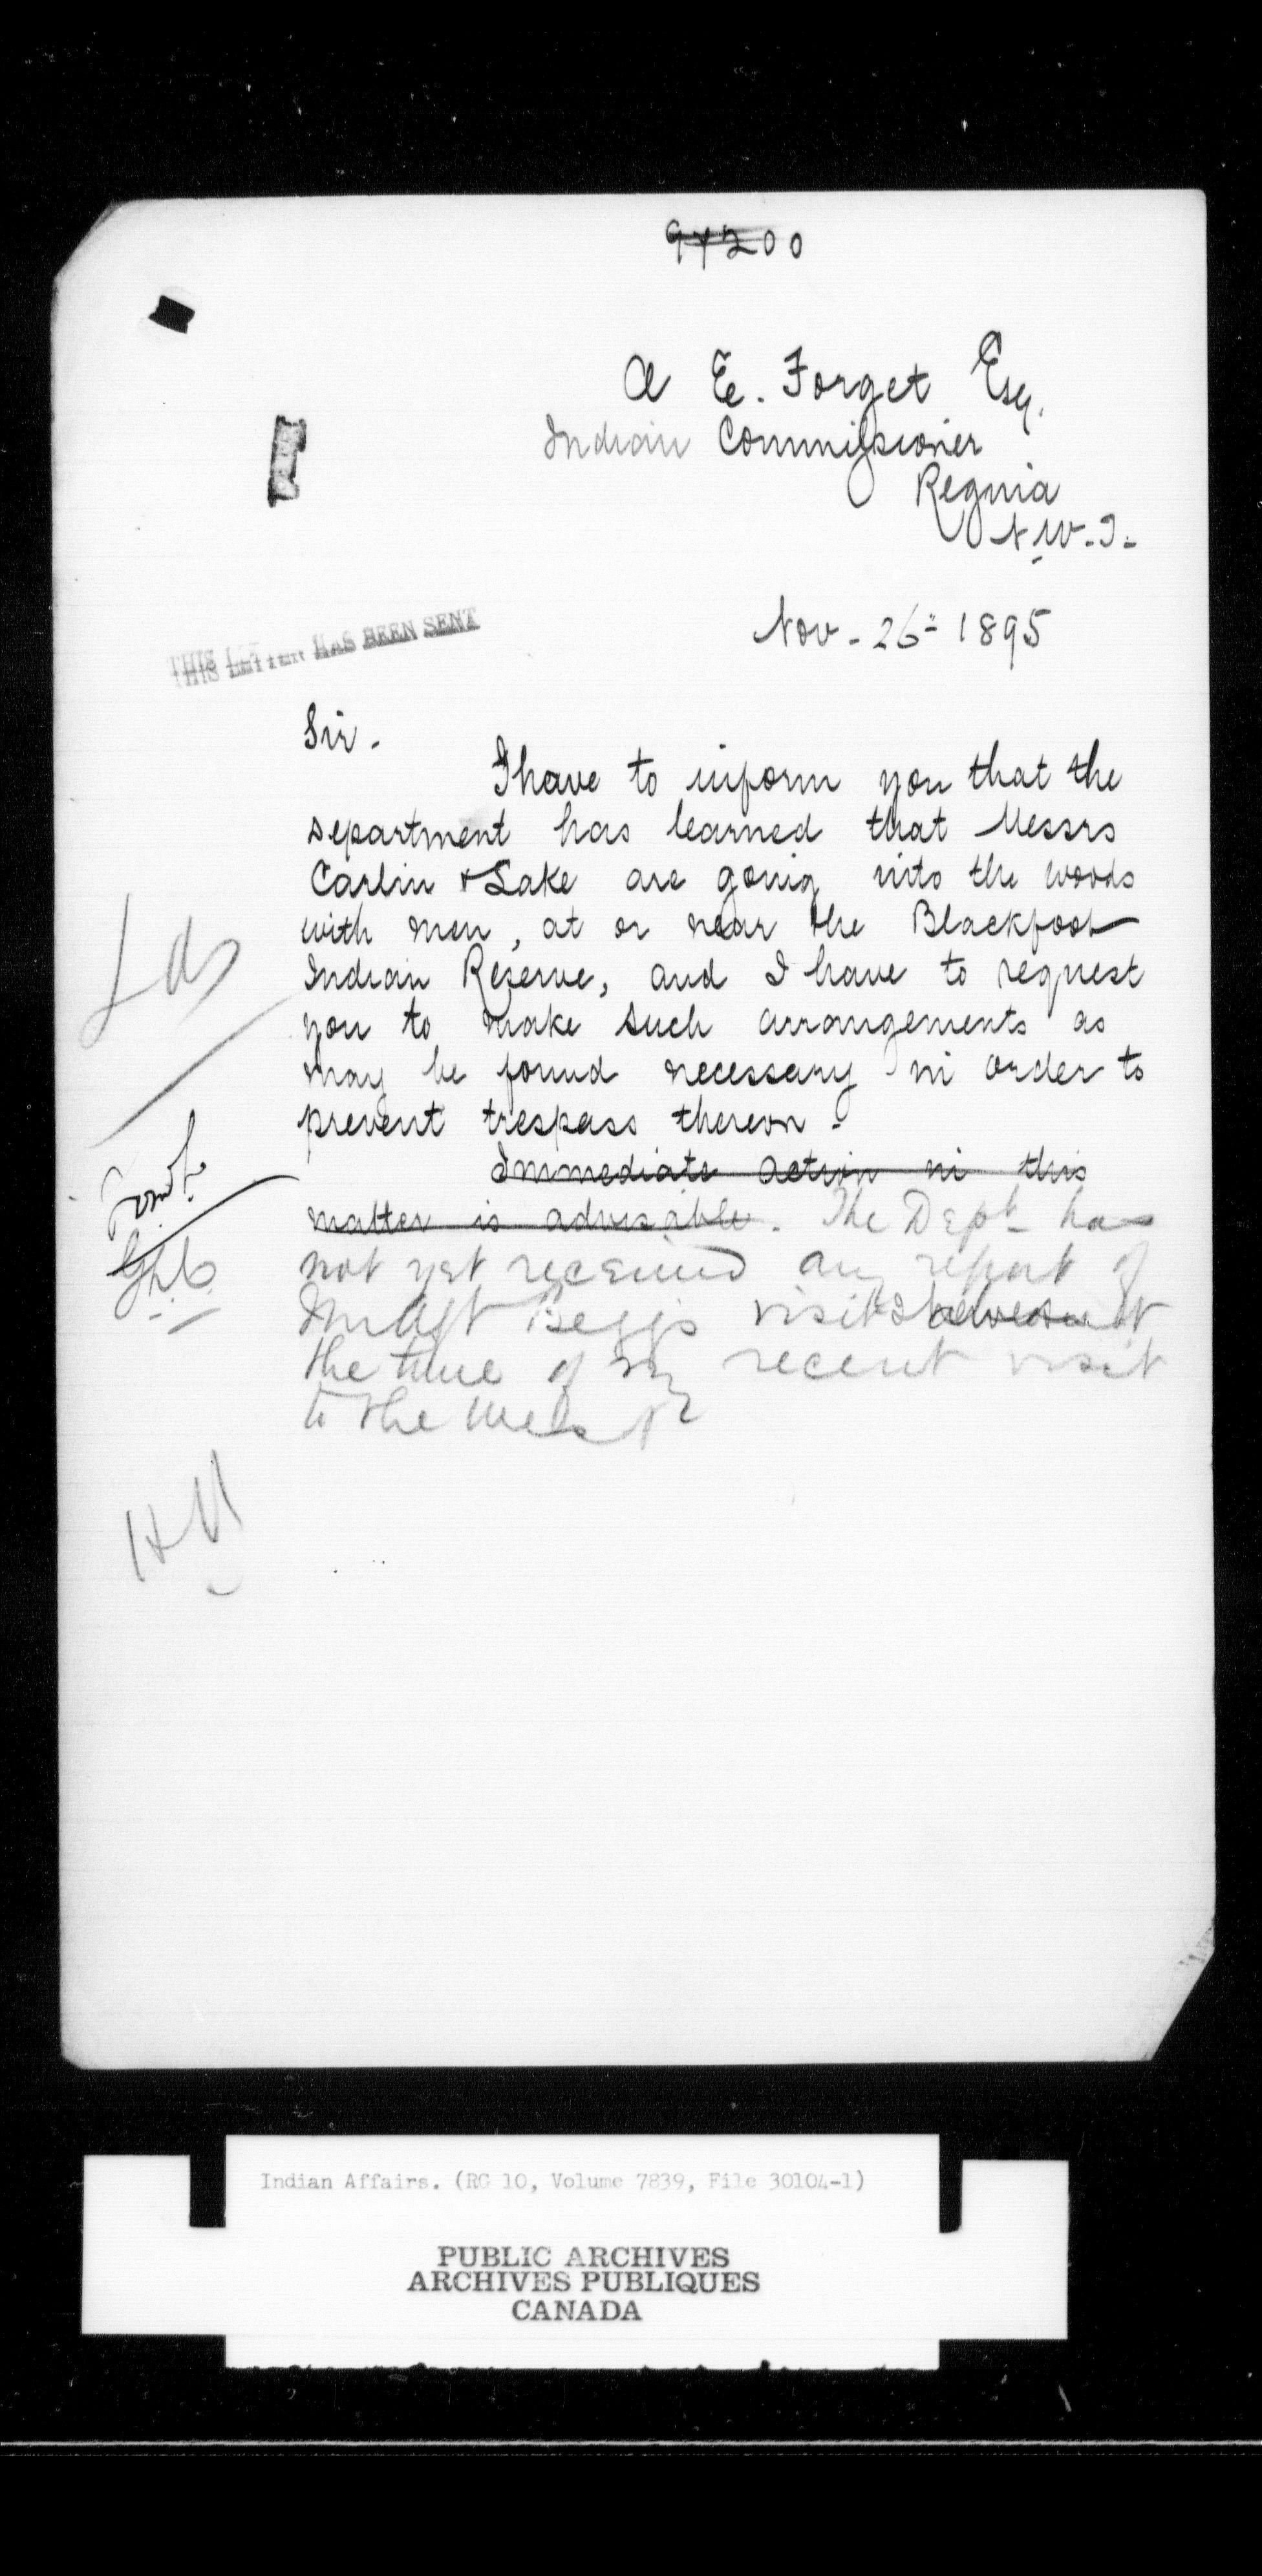 97200
A E. Forget Esq.
Indian Commissioner
Regina
N.W.T.
THIS LETTER HAS BEEN SENT
Nov. 26 1895
Sir.
I have to inform you that the
Department has learned that Messrs
Carlin & Lake are going into the woods
with men, at or near the Blackfoot
Indian Reserve, and I have to request
you to make such arrangements as
may be found necessary in order to
prevent trespass thereon.
Immediate action in this
matter is advisable. The Dept has
not yet received any report of
Beggs visit at
the time of my recent visit
to the West
Indian Affairs. (RG 10, Volume 7839, File 30104-1)
PUBLIC ARCHIVES
ARCHIVES PUBLIQUES
CANADA